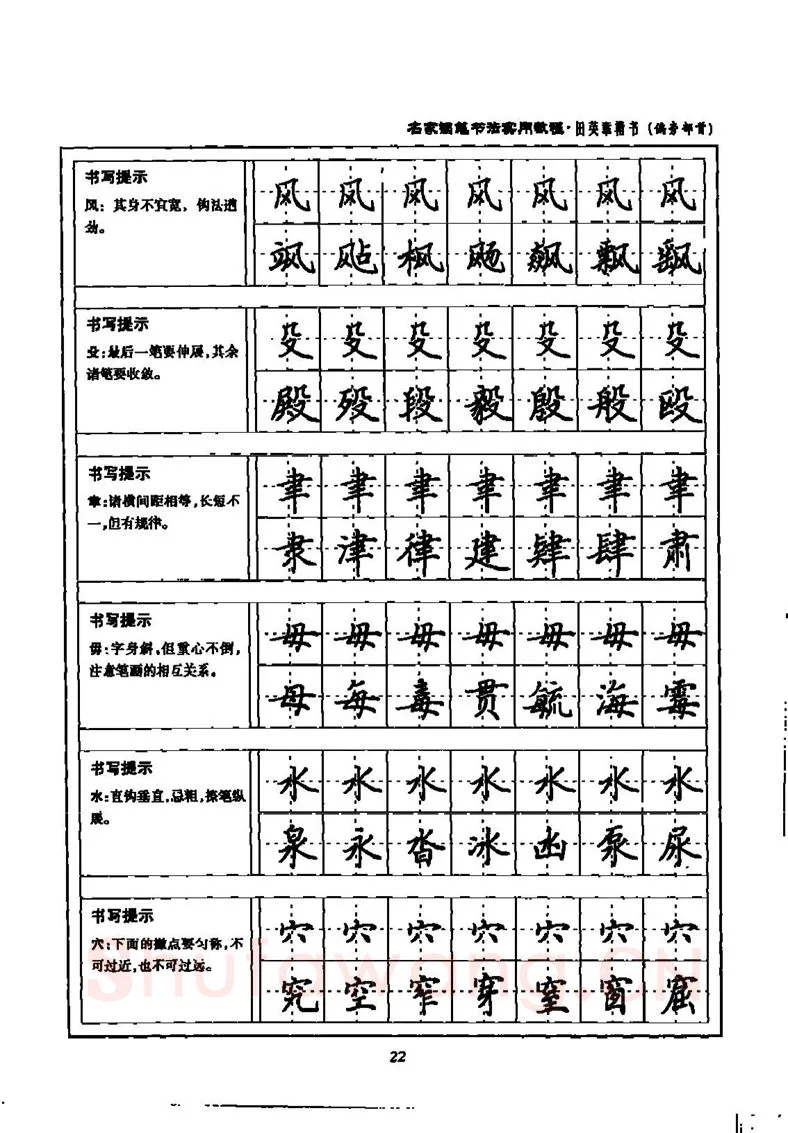 名家钢笔书法实用教程·田英章楷书（偏旁部首）
书写提示
风：其身不宜宽，钩法遒
劲。
风 风 风 风 风 风 风
飒 飐 枫 飏 飙 飘 飘
书写提示
殳：最后一笔要伸展，其余
诸笔要收敛。
殳 殳 殳 殳 殳 殳 殳
殿 殁 段 毅 殷 般 殴
书写提示
聿：诸横间距相等，长短不
一，但有规律。
聿 聿 聿 聿 聿 聿 聿
隶 津 律 建 肄 肆 肃
书写提示
毋：字身斜，但重心不倒，
注意笔画的相互关系。
毋 毋 毋 毋 毋 毋 毋
母 每 毒 贯 毓 海 霉
书写提示
水：直钩垂直，忌粗，捺笔纵
展。
水 水 水 水 水 水 水
泉 永 沓 冰 凼 泵 尿
书写提示
穴：下面的撇点要匀称，不
可过近，也不可过远。
穴 穴 穴 穴 穴 穴 穴
究 空 窄 穿 室 窗 窟
Shufawang.CN
22